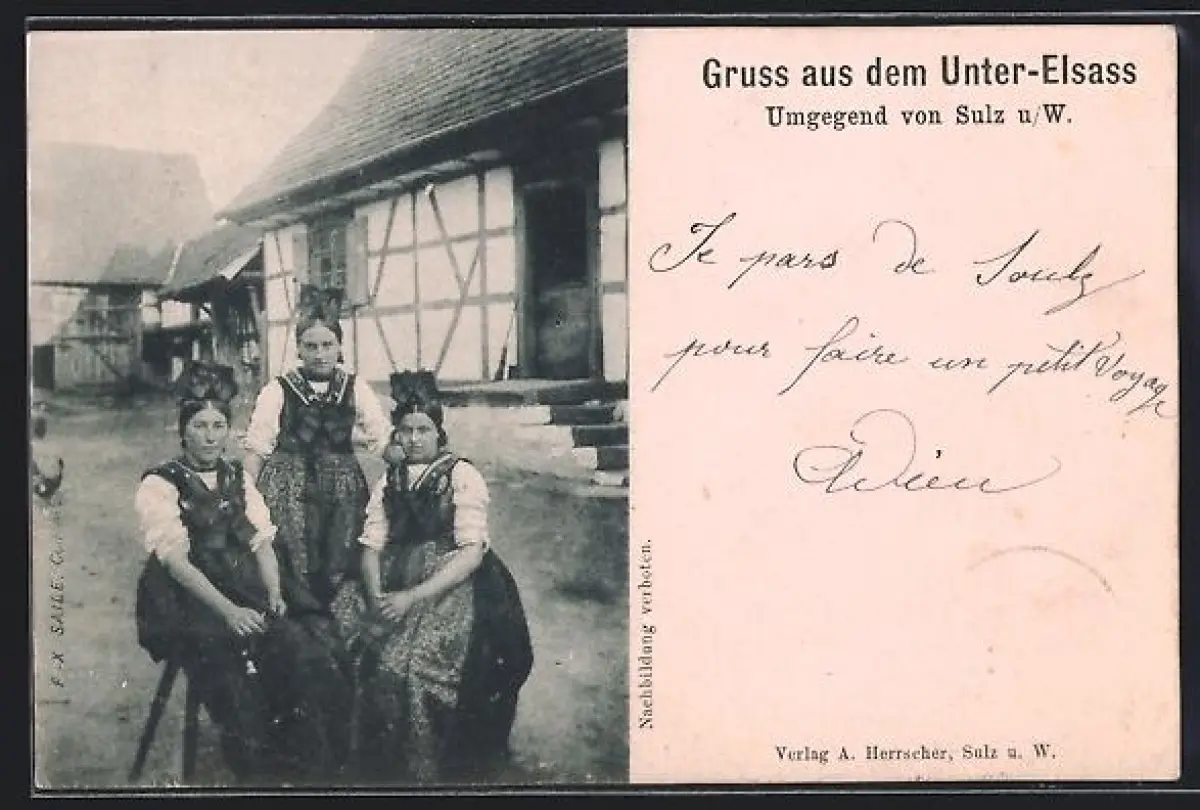 Gruss aus dem Unter-Elsass
Umgegend von Sulz u/W.
Je pars de Soulz
pour faire un petit Voyage
Nachbildung verboten.
Verlag A. Herrscher, Sulz u. W.
SAILE,